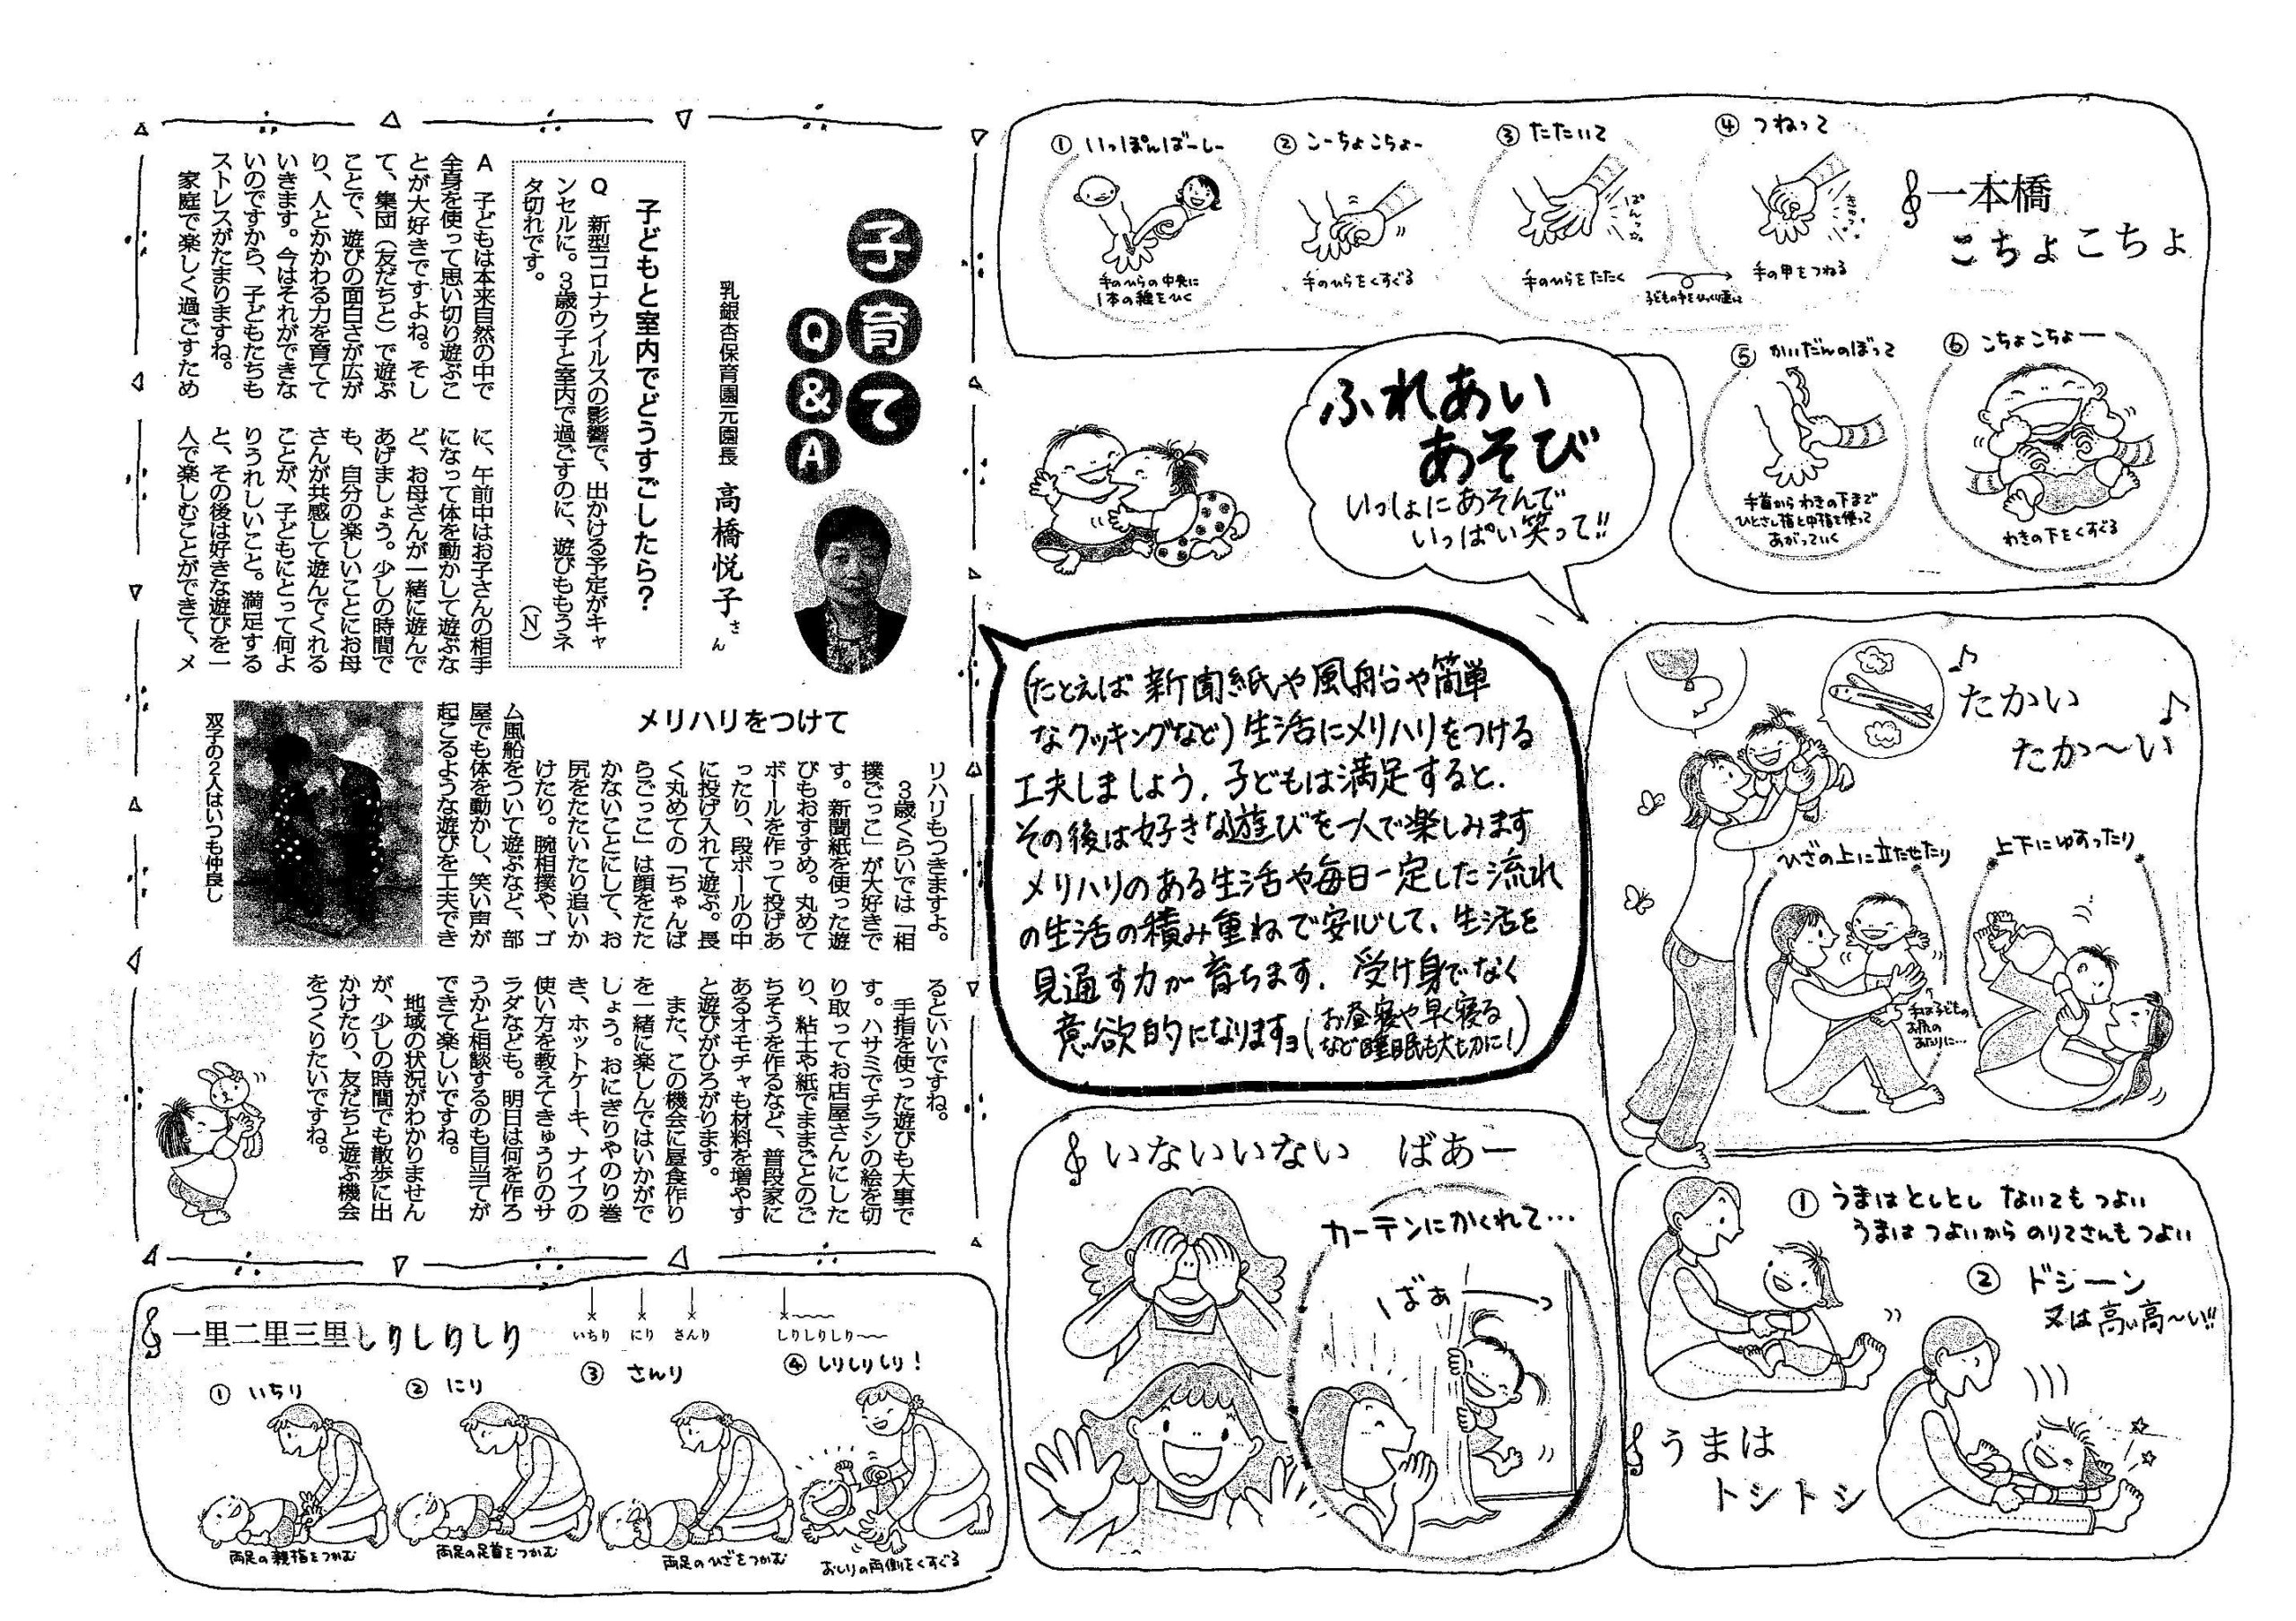 一本橋
こちょこちょ
① いっぽんばーしー
手のひらの中央に
1本の線をひく
② こーちょこちょー
手のひらをくすぐる
③ たたいて
ぱんっ
手のひらをたたく
子どもの手をひっくり返して
④ つねって
きゅっ
手の甲をつねる
⑤ かいだんのぼって
手首からわきの下まで
ひとさし指と中指を使って
あがっていく
⑥ こちょこちょー
わきの下をくすぐる
ふれあい
あそび
いっしょにあそんで
いっぱい笑って!!
子育て
Q&A
乳銀杏保育園元園長 高橋悦子さん
子どもと室内でどうすごしたら?
Q 新型コロナウイルスの影響で、出かける予定がキャ
ンセルに。3歳の子と室内で過ごすのに、遊びももうネ
タ切れです。
(N)
A 子どもは本来自然の中で
全身を使って思い切り遊ぶこ
とが大好きですよね。そし
て、集団(友だちと)で遊ぶ
ことで、遊びの面白さが広が
り、人とかかわる力を育てて
いきます。今はそれができな
いのですから、子どもたちも
ストレスがたまりますね。
家庭で楽しく過ごすため
に、午前中はお子さんの相手
になって体を動かして遊ぶな
ど、お母さんが一緒に遊んで
あげましょう。少しの時間で
も、自分の楽しいことにお母
さんが共感して遊んでくれる
ことが、子どもにとって何よ
りうれしいこと。満足する
と、その後は好きな遊びを一
人で楽しむことができて、メ
リハリもつきますよ。
メリハリをつけて
3歳くらいでは「相
撲ごっこ」が大好きで
す。新聞紙を使った遊
びもおすすめ。丸めて
ボールを作って投げあ
ったり、段ボールの中
に投げ入れて遊ぶ。長
く丸めての「ちゃんば
らごっこ」は顔をたた
かないことにして、お
尻をたたいたり追いか
けたり。腕相撲や、ゴ
ム風船をついて遊ぶなど、部
屋でも体を動かし、笑い声が
起こるような遊びを工夫でき
双子の2人はいつも仲良し
るといいですね。
手指を使った遊びも大事で
す。ハサミでチラシの絵を切
り取ってお店屋さんにした
り、粘土や紙でままごとのご
ちそうを作るなど、普段家に
あるオモチャも材料を増やす
と遊びがひろがります。
また、この機会に昼食作り
を一緒に楽しんではいかがで
しょう。おにぎりやのり巻
き、ホットケーキ、ナイフの
使い方を教えてきゅうりのサ
ラダなども。明日は何を作ろ
うかと相談するのも目当てが
できて楽しいですね。
地域の状況がわかりません
が、少しの時間でも散歩に出
かけたり、友だちと遊ぶ機会
をつくりたいですね。
(たとえば 新聞紙や風船や簡単
なクッキングなど)生活にメリハリをつける
工夫しましょう。子どもは満足すると、
その後は好きな遊びを一人で楽しみます
メリハリのある生活や毎日一定した流れ
の生活の積み重ねで安心して、生活を
見通す力が育ちます。受け身でなく
意欲的になりますョ(お昼寝や早く寝る
など睡眠も大切に!)
たかい
たか〜い
ひざの上に立たせたり
お尻の
あたりに…
上下にゆすったり
いないいない ばあー
カーテンにかくれて…
ばぁーっ
① うまはとしとし ないてもつよい
うまはつよいから のりてさんもつよい
② ドシーン
又は高い高〜い!!
うまは
トシトシ
一里二里三里しりしりしり
いちり にり さんり しりしりしり〜
① いちり
両足の親指をつかむ
② にり
両足の足首をつかむ
③ さんり
両足のひざをつかむ
④ しりしりしり!
おしりの両側をくすぐる